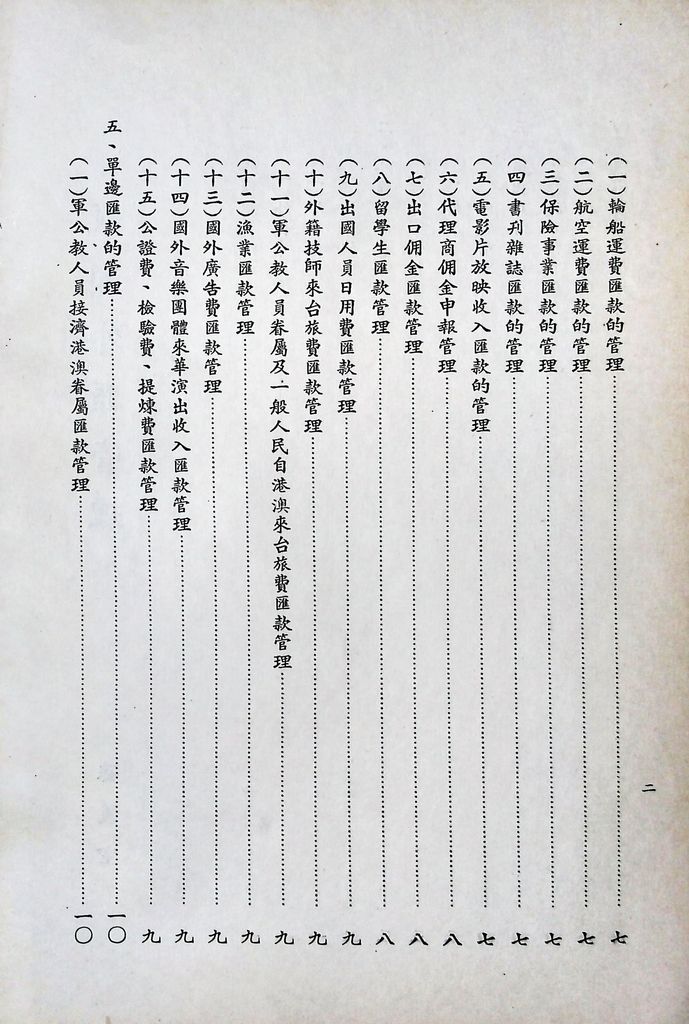 (一)輪船運費匯款的管理……七
(二)航空運費匯款的管理……七
(三)保險事業匯款的管理……七
(四)書刊雜誌匯款的管理……七
(五)電影片放映收入匯款的管理……七
(六)代理商佣金申報管理……八
(七)出口佣金匯款管理……八
(八)留學生匯款管理……八
(九)出國人員日用費匯款管理……九
(十)外籍技師來台旅費匯款管理……九
(十一)軍公教人員眷屬及一般人民自港澳來台旅費匯款管理……九
(十二)漁業匯款管理……九
(十三)國外廣告費匯款管理……九
(十四)國外音樂團體來華演出收入匯款管理……九
(十五)公證費、檢驗費、提煉費匯款管理……九
五、單邊匯款的管理……一〇
(一)軍公教人員接濟港澳眷屬匯款管理……一〇
二